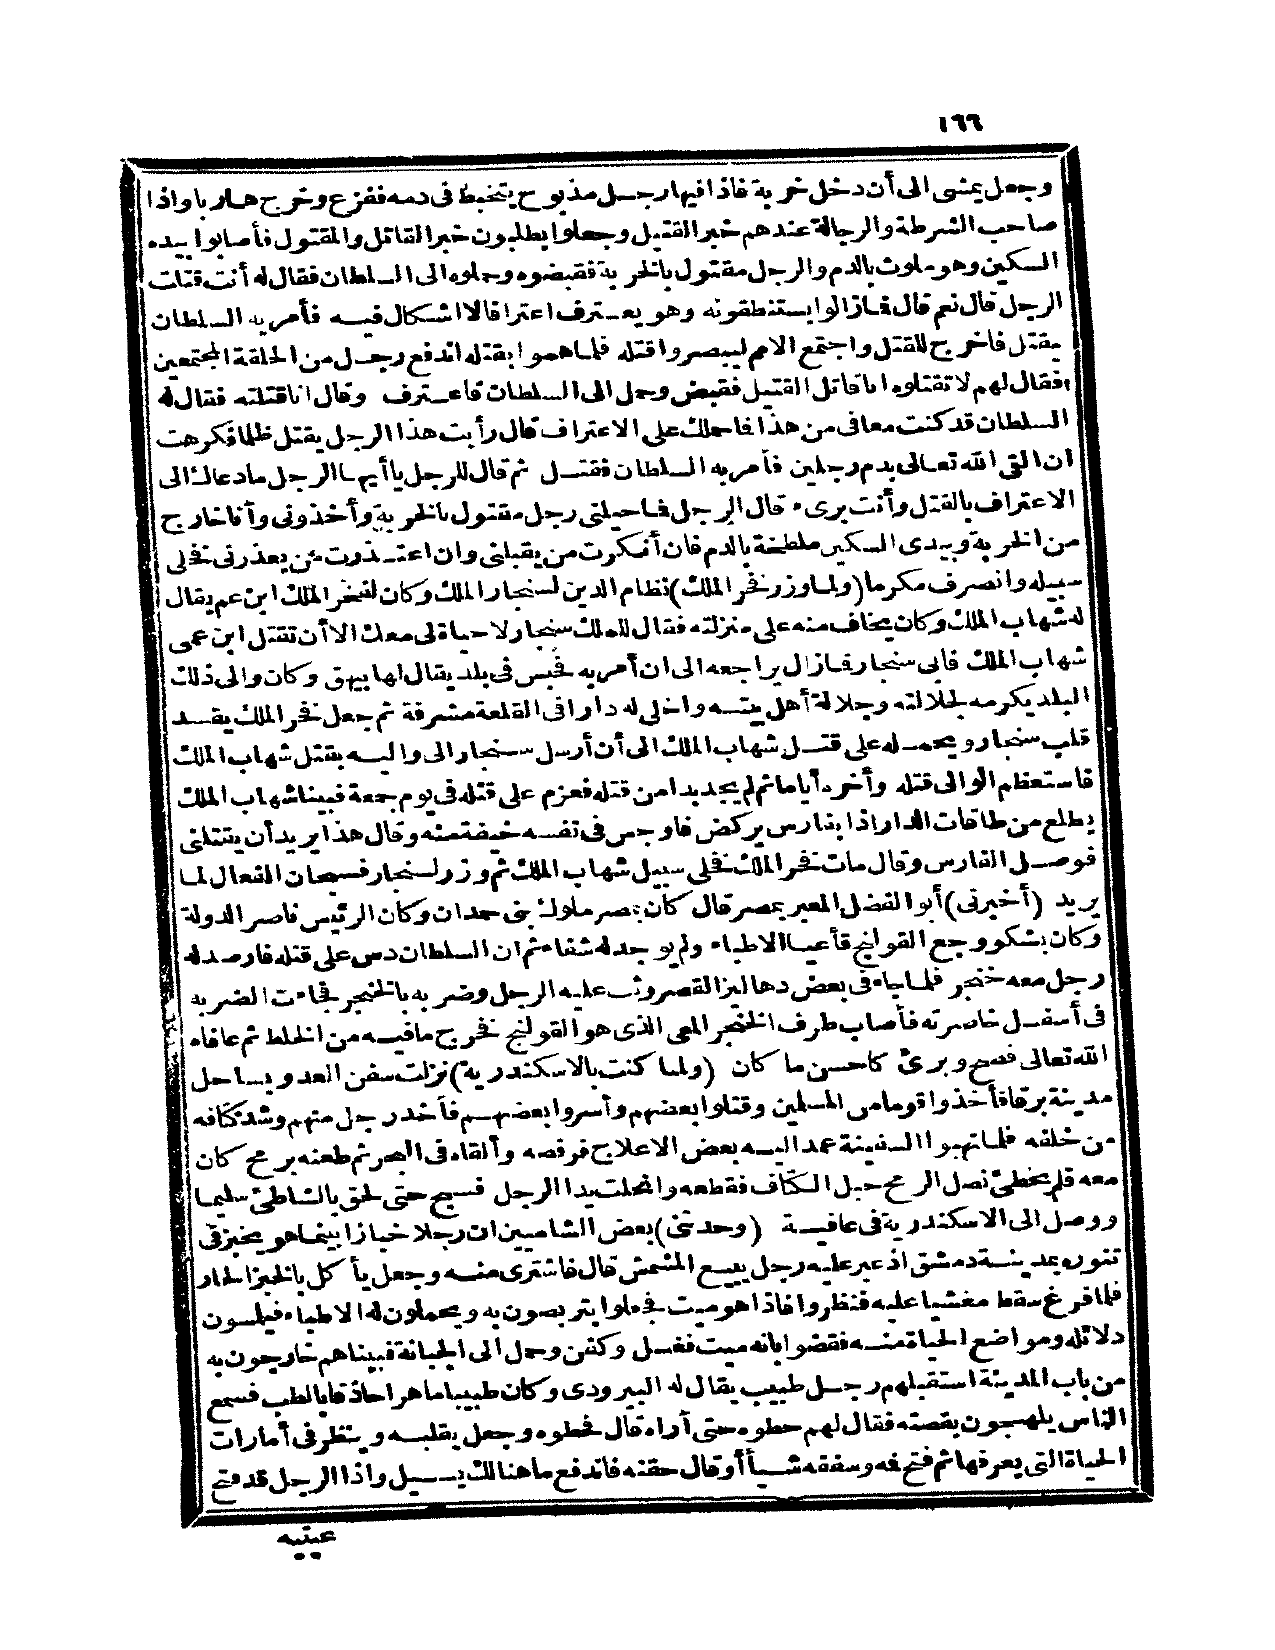 ١٦٦
وجعل يمشى الى أن دخل خربة فاذا فيها رجل مذبوح يتخبط فى دمه ففزع وخرج هاربا واذا
صاحب الشرطة والرجالة عندهم خبر القتيل وجعلوا يطلبون خبر القاتل والمقتول فأصابوا بيده
السكين وهو ملوث بالدم والرجل مقتول بالخربة فقبضوه وحملوه الى السلطان فقال له أنت قتلت
الرجل قال نعم قال فمازالوا يستنطقونه وهو يعترف اعترافا لا اشكال فيه فأمر به السلطان
يقتل فاخرج للقتل واجتمع الامم ليبصروا قتله فلما هموا بقتله اندفع رجل من الحلقة المجتمعين
فقال لهم لا تقتلوه انا قاتل القتيل فقبض وحمل الى السلطان فاعترف وقال انا قتلته فقال له
السلطان قد كنت معافى من هذا فما حملك على الاعتراف قال رأيت هذا الرجل يقتل ظلما فكرهت
ان التى الله تعالى بدم رجلين فأمر به السلطان فقتل ثم قال للرجل يا أيها الرجل ما دعاك الى
الاعتراف بالقتل وأنت برىء قال الرجل فما حيلتى رجل مقتول بالخربة وأخذونى وأنا خارج
من الخربة وبيدى السكين ملطخة بالدم فان أنكرت من يقبلنى وان اعتذرت من يعذرنى فخلى
سبيله وانصرف مكرما (ولما وزر فخر الملك) نظام الدين لسنجار الملك وكان لفخر الملك ابن عم يقال
له شهاب الملك وكان يخاف منه على منزلته فقال للملك سنجار لا حياة لى معك الا أن تقتل ابن عمى
شهاب الملك فابى سنجار فمازال يراجعه الى ان أمر به فحبس فى بلد يقال لها بيهق وكان والى ذلك
البلد يكرمه لجلالته وجلالة أهل بيته واخلى له دارا فى القلعة مشرفة ثم جعل فخر الملك يفسد
قلب سنجار ويحمله على قتل شهاب الملك الى أن أرسل سنجار الى واليه بقتل شهاب الملك
فاستعظم الوالى قتله وأخره أياما ثم لم يجد بدا من قتله فعزم على قتله فى يوم جمعة فبينا شهاب الملك
يطلع من طاقات الدار اذا بفارس يركض فاوجس فى نفسه خيفة منه وقال هذا يريد أن يقتلنى
فوصل الفارس وقال مات فخر الملك فخلى سبيل شهاب الملك ثم وزر لسنجار فسبحان الفعال لما
يريد (أخبرنى) أبو الفضل المعبر بمصر قال كان بمصر ملوك بنى حمدان وكان الرئيس ناصر الدولة
وكان يشكو وجع القولنج فأعيا الاطباء ولم يوجد له شفاء ثم ان السلطان دس على قتله فارصد له
رجل معه خنجر فلما جاء فى بعض دهاليز القصر وثب عليه الرجل وضربه بالخنجر فجاءت الضربة
فى أسفل خاصرته فأصاب طرف الخنجر المعى الذى هو القولنج فخرج ما فيه من الخلط ثم عافاه
الله تعالى فصح وبرئ كاحسن ما كان (ولما كنت بالاسكندرية) نزلت سفن العدو بساحل
مدينة برقة فأخذوا قوما من المسلمين وقتلوا بعضهم وأسروا بعضهم فأخذ رجل منهم وشد كتافه
من خلفه فلما نهبوا السفينة عمد اليه بعض الاعلاج فرفصه وألقاه فى البحر ثم طعنه برمح كان
معه فلم يخطئ نصل الرمح حبل الكتاف فقطعه وانحلت يدا الرجل فسبح حتى لحق بالشاطئ سليما
ووصل الى الاسكندرية فى عافية (وحدثنى) بعض الشاميين ان رجلا خبازا بينما هو يخبز فى
تنوره بمدينة دمشق اذ عبر عليه رجل يبيع المشمش قال فاشترى منه وجعل يأكل بالخبز الحار
فلما فرغ سقط مغشيا عليه فنظروا فاذا هو ميت فجعلوا يتربصون به ويحملون له الاطباء فيلمسون
دلائله ومواضع الحياة منه فقضوا بانه ميت فغسل وكفن وحمل الى الجبانة فبيناهم خارجون به
من باب المدينة استقبلهم رجل طبيب يقال له اليبرودى وكان طبيبا ماهرا حاذقا بالطب فسمع
الناس يلهجون بقصته فقال لهم حطوه حتى أراه قال فحطوه وجعل يقلبه وينظر فى أمارات
الحياة التى يعرفها ثم فتح فمه وسقفه شيأ أو قال حقنه فاندفع ما هنالك يسيل واذا الرجل قد فتح
عينيه